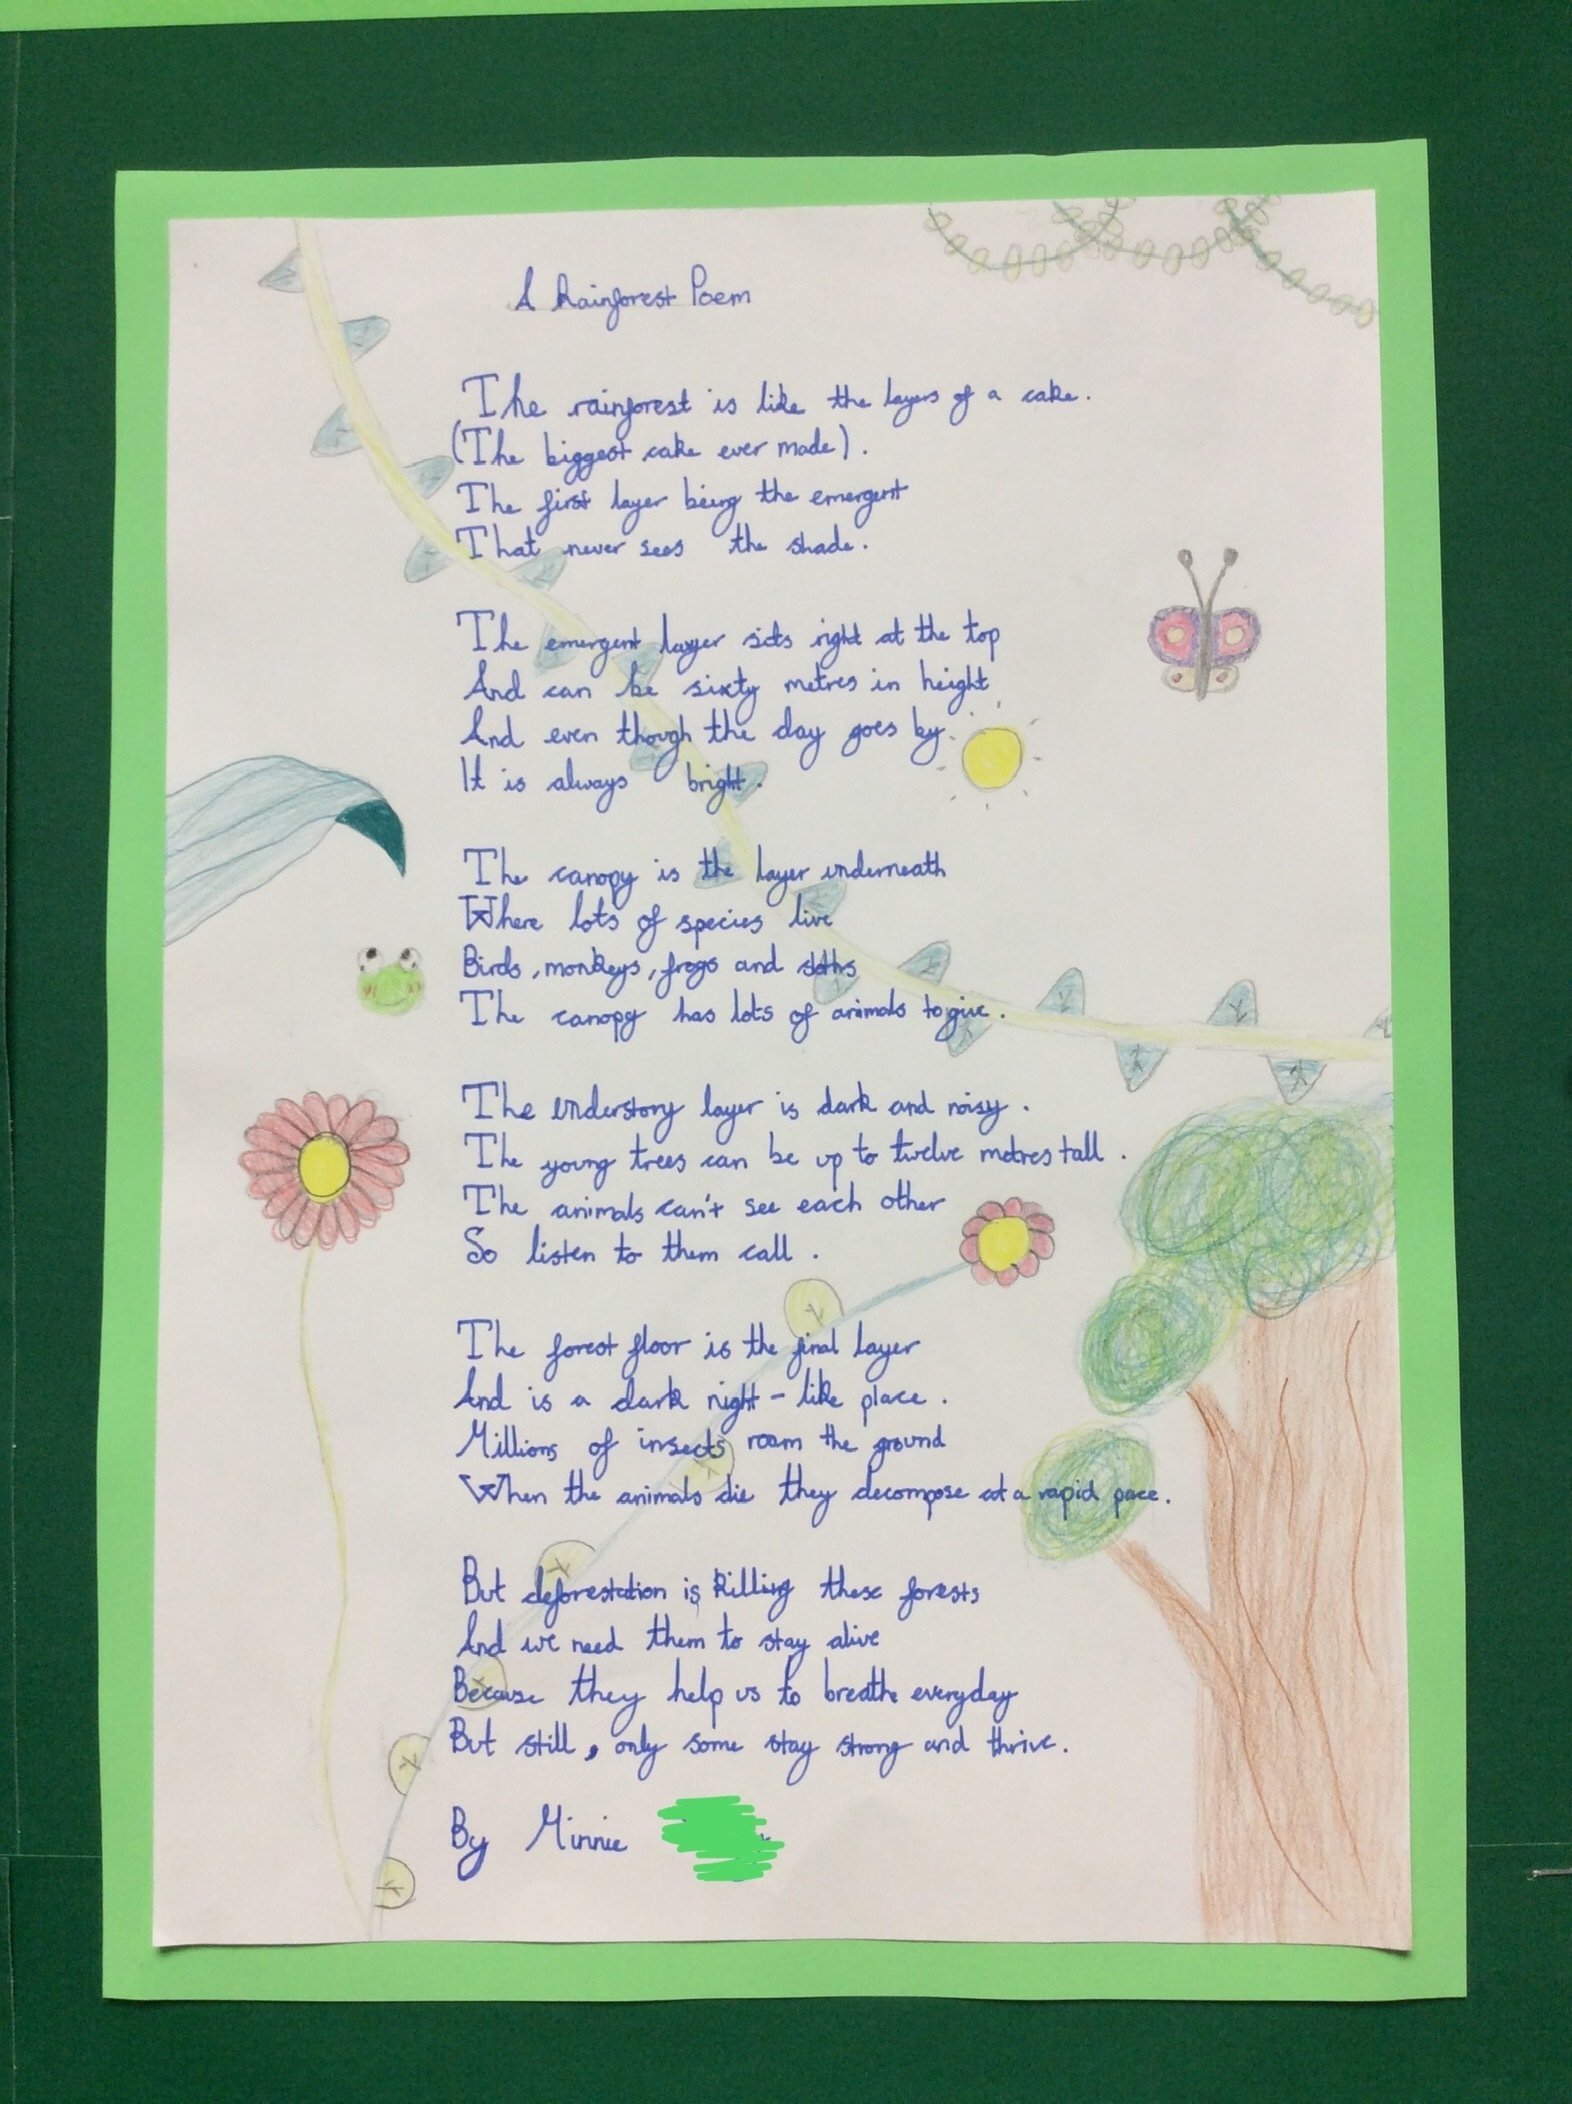 A Rainforest Poem
The rainforest is like the layers of a cake.
(The biggest cake ever made).
The first layer being the emergent
That never sees the shade.
The emergent layer sits right at the top
And can be sixty metres in height
And even though the day goes by
It is always bright.
The canopy is the layer underneath
Where lots of species live
Birds, monkeys, frogs and sloths
The canopy has lots of animals to give.
The understory layer is dark and noisy.
The young trees can be up to twelve metres tall.
The animals can't see each other
So listen to them call.
The forest floor is the final layer
And is a dark night-like place.
Millions of insects roam the ground
When the animals die they decompose at a rapid pace.
But deforestation is killing these forests
And we need them to stay alive
Because they help us to breathe everyday
But still, only some stay strong and thrive.
By Minnie